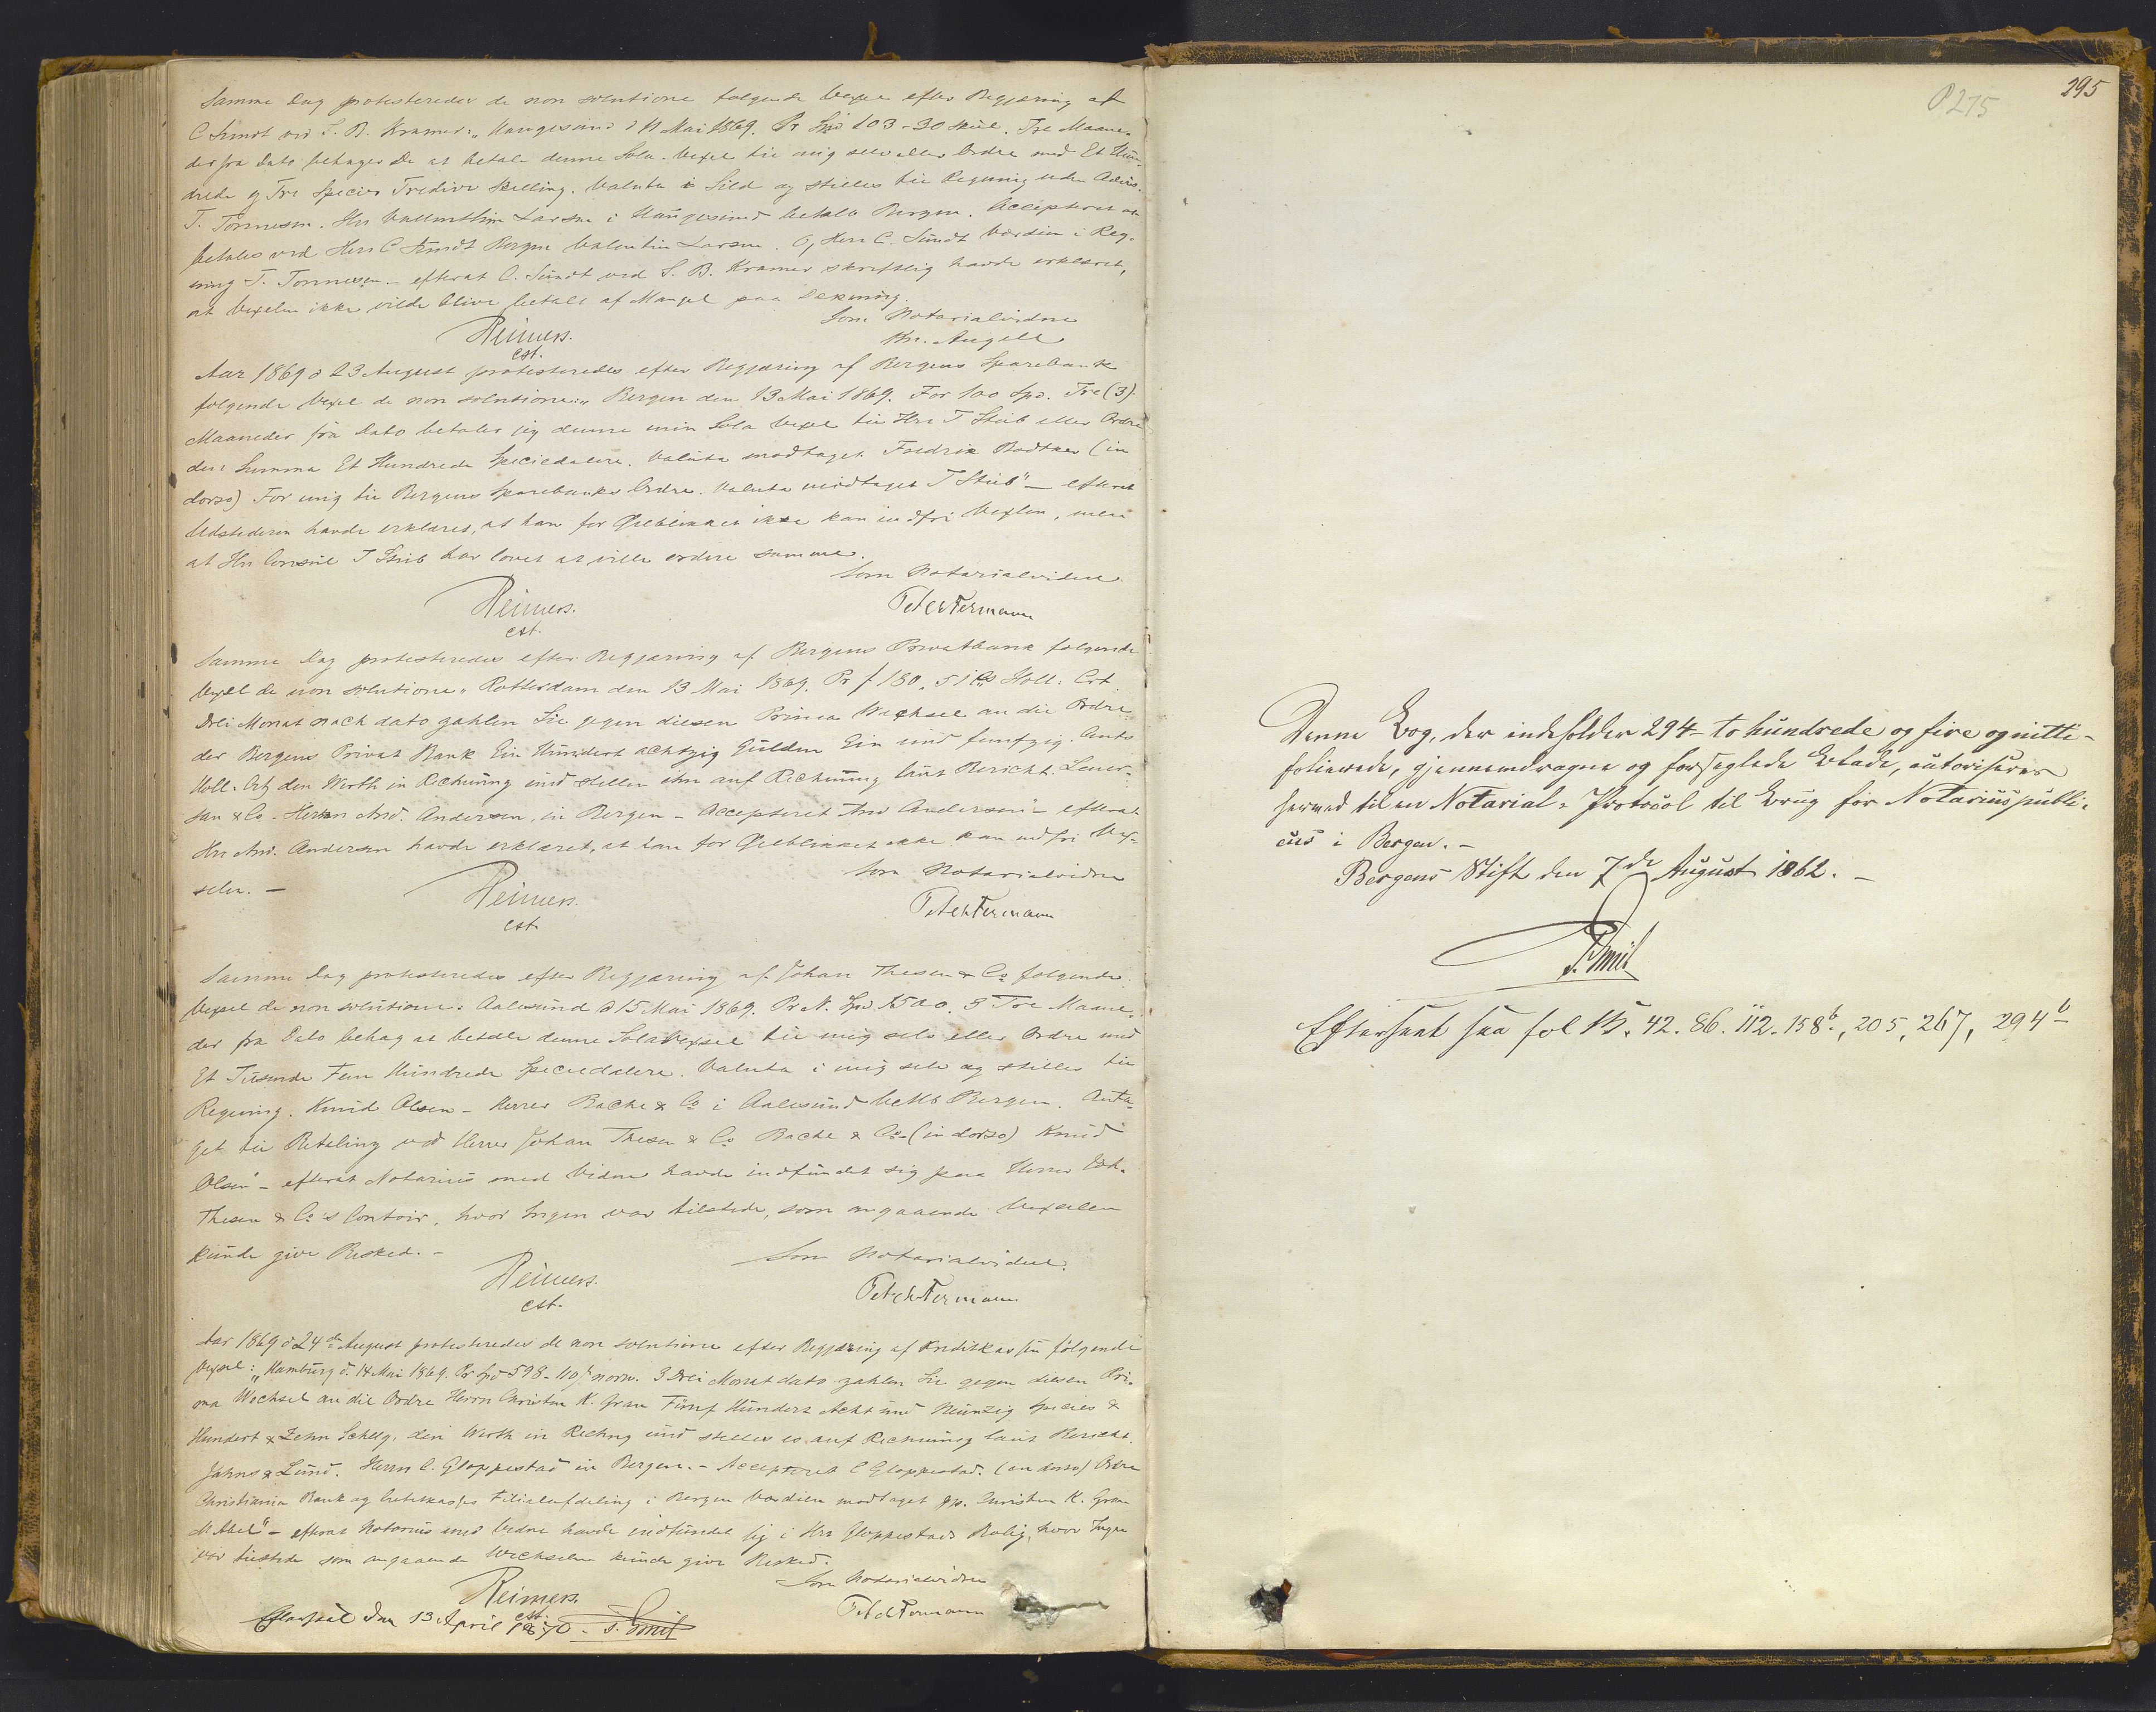 Samme Dag protesteredes de non solutione følgende Vexel efter Begjæring af
C Sundt ved S. B. Kramer: „Haugesund d 11 Mai 1869. Pr Spd 103 - 30 skill. Tre Maane-
der fra Dato behager De at betale denne Sola-Vexel til mig selv eller Ordre med Et Hun-
drede og Tre Species Tredive Skilling. Valuta i Sild og stilles til Regning uden Advis.
T. Tönnesen. Hr Larsen i Haugesund betalb Bergen. Accepteret
betales ved Herr C Sundt Bergen Valentin Larsen. Herr C. Sundt Værdien i Reg-
ning T. Tonnesen - efterat C. Sundt ved S. B. Kramer skriftlig havde erklæret,
at Vexelen ikke vilde blive betalt af Mangel paa Dekning.
Som Notarialvidne
Reimers.
cst.
Aar 1869 d 23 August protesteredes efter Begjæring af Bergens Sparebank
følgende Vexel de non solutione: „Bergen den 13 Mai 1869. For 100 Spd. Tre (3)
Maaneder fra Dato betaler jeg denne min Sola Vexel til Hrr T Stub eller Ordre
den Summa Et Hundrede Speciedalere. Valuta modtaget. Fredrik Bødtker (in
dorso) For mig til Bergens Sparebanks Ordre. Valuta modtaget T Stub" - efterat
Udstederen havde erklæret, at han for Øieblikket ikke kan indfri Vexlen, men
at Hrr Consul T Stub har lovet at ville ordne samme.
Som Notarialvidne
Reimers.
cst.
Samme Dag protesteredes efter Begjæring af Bergens Privatbank følgende
Vexel de non solutione „Rotterdam den 13 Mai 1869. Pr f 180, 51 Holl: Crt.
Drei Monat nach dato zahlen Sie gegen diesen Prima Wechsel an die Ordre
der Bergens Privat Bank Ein Hundert achtzig Gulden Ein und funfzig
Holl. Crt, den Werth in Rechnung und stellen ihn auf Rechnung laut Bericht.
& Co. Herrn And. Andersen, in Bergen - Accepteret And Andersen" - efterat
Hrr And. Andersen havde erklæret, at han for Øieblikket ikke kan indfri Vex-
selen. -
Som Notarialvidne
Reimers.
cst.
Samme Dag protesteredes efter Begjæring af Johan Thesen & Co følgende
Vexel de non solutione: Aalesund d 15 Mai 1869. Pr N. Spd 1500. 3 Tre Maane-
der fra Dato behag at betale denne Solavexsel til mig selv eller Ordre med
Et Tusinde Fem Hundrede Speciedalere. Valuta i mig selv og stilles til
Regning. Knud Olsen - Herrer Backe & Co i Aalesund betalb Bergen. Anta-
get til Betaling ved Herrer Johan Thesen & Co Backe & Co - (in dorso) Knud
Olsen" - efterat Notarius med Vidne havde indfundet sig paa Herrer Joh.
Thesen & Co's Contoir, hvor Ingen var tilstede, som angaaende Vexselen
kunde give Besked. -
Som Notarialvidne
Reimers.
cst.
Aar 1869 d 24de August protesteredes de non solutione efter Begjæring af Kreditkassen følgende
Vexsel: „Hamburg d. 14 Mai 1869. Pr Spd 598 - 110 norw. 3 Drei Monat dato zahlen Sie gegen diesen Pri-
ma Wechsel an die Ordre Herrn Christen K. Gran Fünf Hundert Acht und Neunzig Species &
Hundert & Zehn Schillg, den Werth in Rechng und stellen es auf Rechnung laut Bericht.
Jahns & Lund. Herrn C. Gloppestad in Bergen. - Accepteret C Gloppestad. (in dorso) Ordre
Christiania Bank og Creditkasses Filialafdeling i Bergen Værdien modtaget pp. Christen K. Gran
M Abel" - efterat Notarius med Vidne havde indfundet sig i Hrr Gloppestads Bolig, hvor Ingen
var tilstede som angaaende Wechselen kunde give Besked.
Som Notarialvidne
Reimers.
cst.
Efterseet den 13 April 1870.
P. 275
295
Denne Bog, der indeholder 294 - to hundrede og fire og nitti -
folierede, gjennemdragne og forseglede Blade, autoriseres
herved til en Notarial-Protocol til Brug for Notarius publi-
cus i Bergen. -
Bergens Stift den 7de August 1862. -
Efterseet saa fol 15. 42. 86. 112. 158b., 205, 267, 294b